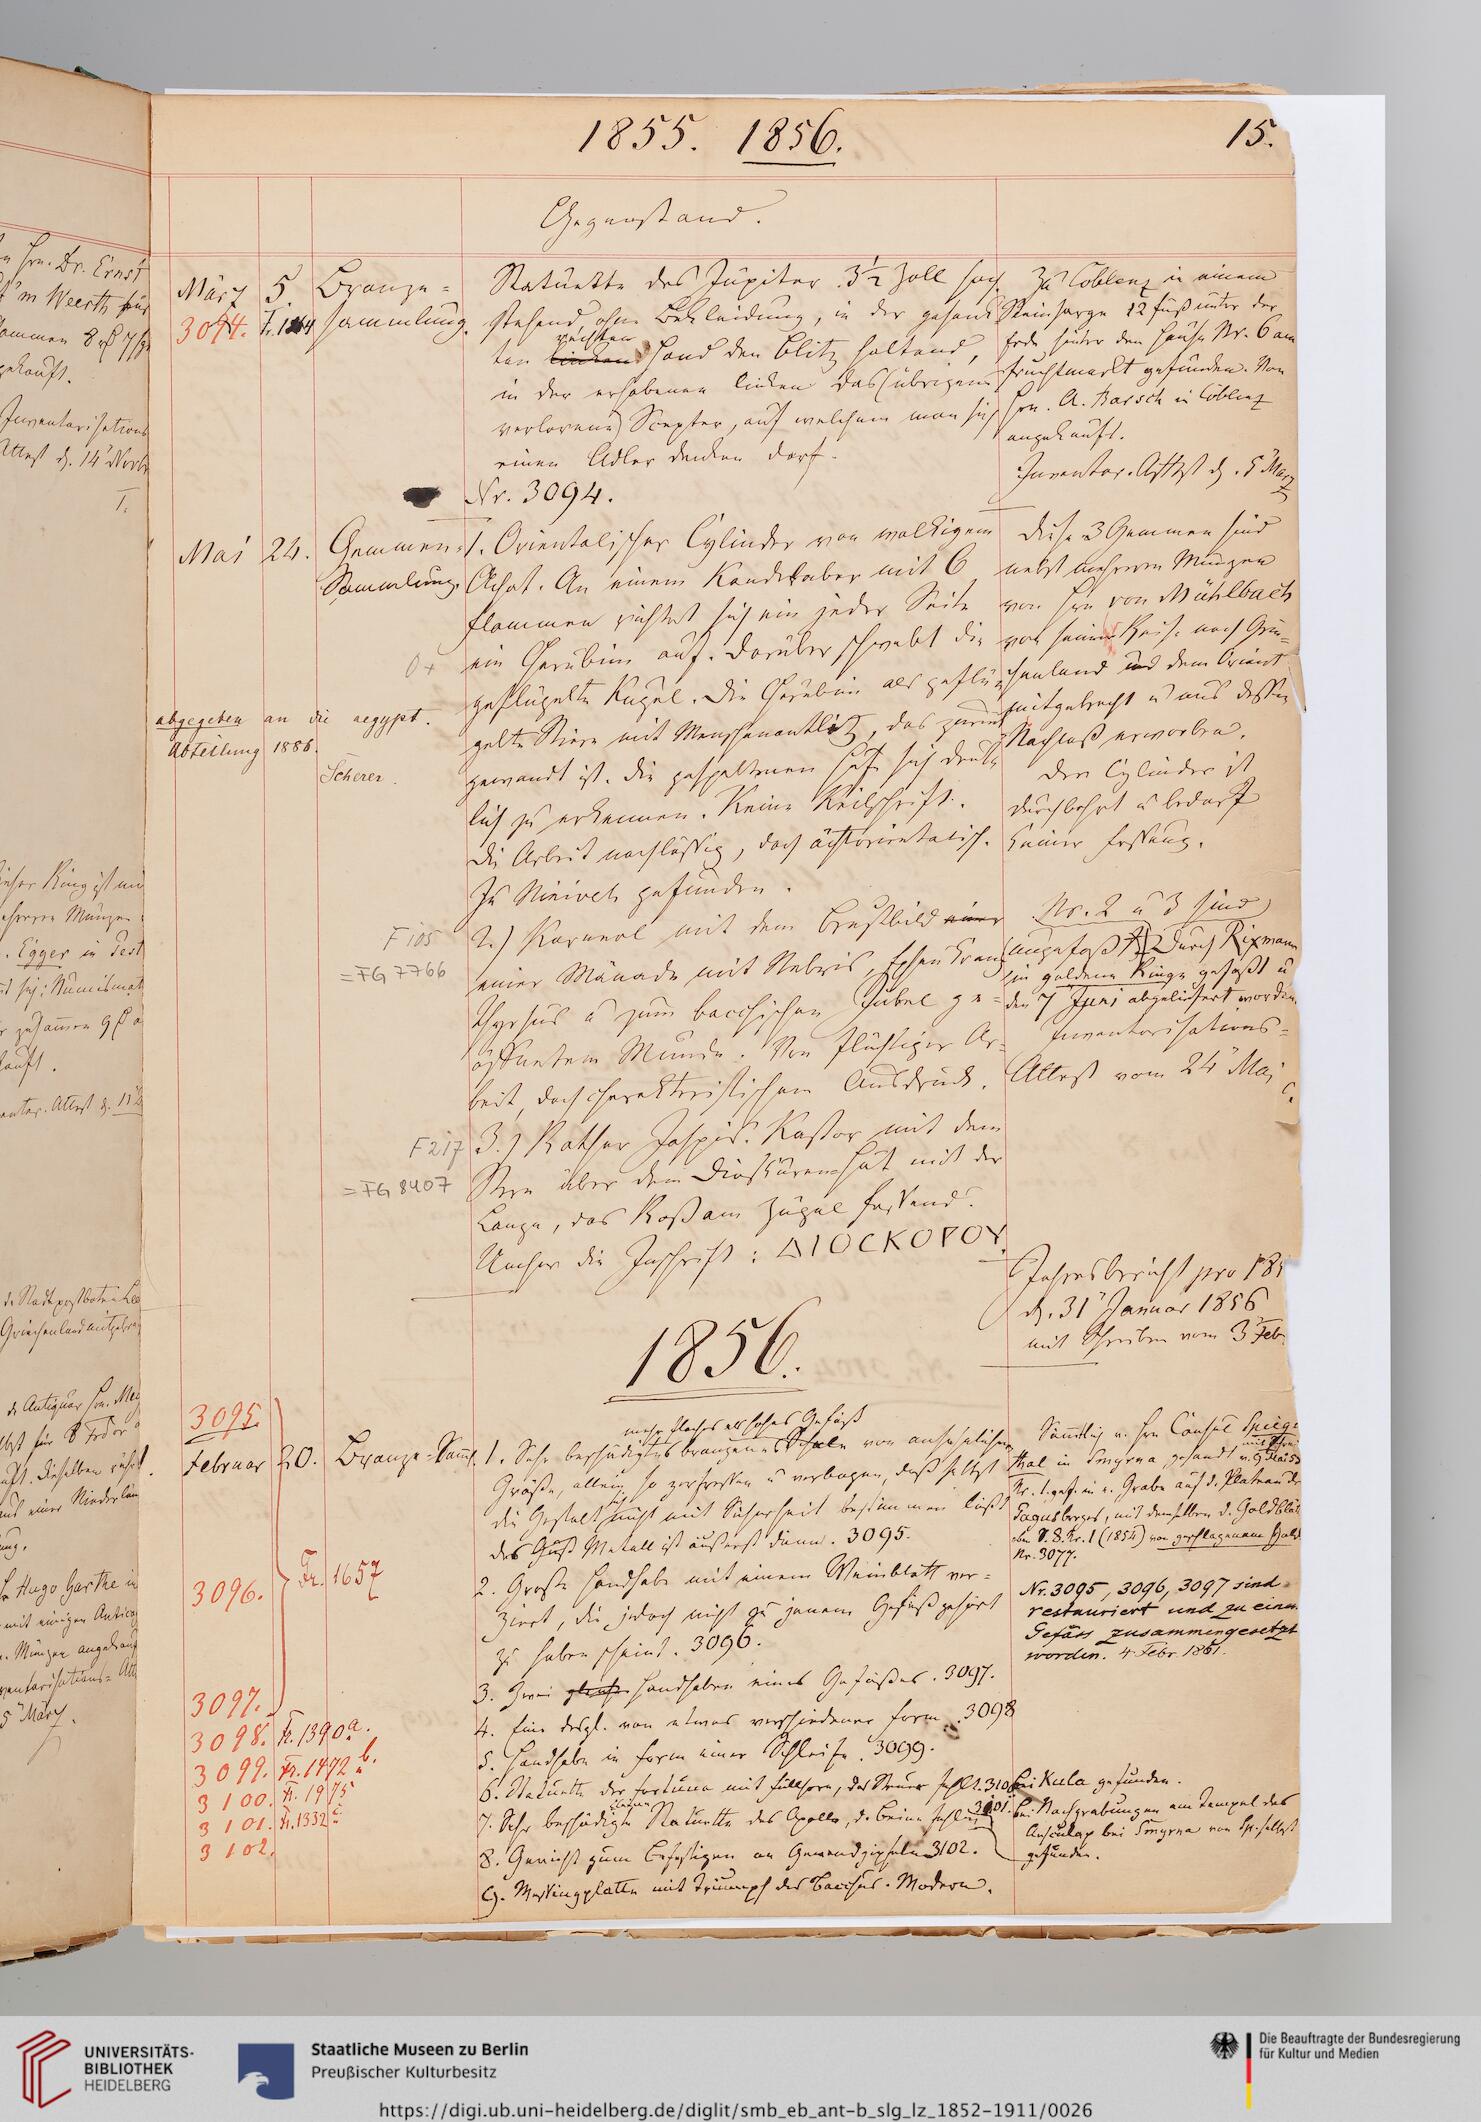 1855. 1856.
15.
Gegenstand.
März 5. Bronze=
3094. Fr. sammlung.
Statuette des Jupiter 3½ Zoll hoch
stehend, ohne Bekleidung, in der gesenk
ten linken rechten Hand den Blitz haltend,
in der erhobenen linken das (übrigens
verlorene) Scepter, auf welchem man sich
einen Adler denken darf.
Nr. 3094.
Zu Coblenz in einem
Steinsarge 12 Fuß unter der
Erde hinter dem Hause Nr. 6 am
Fruchtmarkt gefunden. Von
Hrn. A. Barsch in Coblenz
angekauft.
Inventar. Attest d. 5 März
Mai 24. Gemmen=
Sammlung.
0+
abgegeben an die aegypt.
Abteilung 1886.
Scherer.
1. Orientalischer Cylinder von wolkigem
Achat. An einem Kandelaber mit 6
Flammen richtet sich ein jeder Seite
ein Cherubim auf. Darüber schwebt die
geflügelte Kugel. Die Cherubim als geflü=
gelte Stiere mit Menschenantlitz, das zurück
gewandt ist. Die gespaltenen Hufe sich deut=
lich zu erkennen. Keine Keilschrift.
Die Arbeit nachlässig, doch ächt orientalisch.
Zu Niniveh gefunden.
Diese 3 Gemmen sind
nebst mehreren Münzen
von Hrn von Mühlbach
von seiner Reise nach Grie=
chenland und dem Orient
mitgebracht u aus dessen
Nachlaß erworben.
Der Cylinder ist
durchbohrt u bedarf
keiner Fassung.
F 105
=FG 7766
2.) Karneol mit dem Brustbild einer
einer Mänade mit Nebris, Epheukranz
Thyrsus u zum bacchischen Jubel ge=
öffnetem Munde. Von flüchtiger Ar=
beit, doch charakteristischem Ausdruck.
Nr. 2 u 3 sind
ungefaßt Durch Rixmann
in goldene Ringe gefaßt u
den 7 Juni abgeliefert worden.
Inventarisations=
Attest vom 24 Mai
F 217
=FG 8407
3.) Rother Jaspis. Kastor mit dem
Stern über dem Dioskürenhut mit der
Lanze, das Roß am Zügel fassend.
Umher die Inschrift: ΔΙΟCΚΟΡΟΥ.
Jahresbericht pro 185
d. 31 Januar 1856
mit Schreiben vom 3 Feb
1856.
3095.
Februar 20. Bronze=Samml.
1. Sehr beschädigtes bronzenes Schale mehr flaches als hohes Gefäß von ansehnlicher
Größe, allein so zerfressen u verbogen, daß selbst
die Gestalt sich nicht mit Sicherheit bestimmen läßt
das Guß Metall ist äußerst dünn. 3095.
Sämmtlich v. Hrn Consul Spiege
thal in Smyrna gesandt
Nr. 1. gef. in e. Grabe auf d. Plateau de
Pagusberges, mit demselben d. Goldblät
oben S. 8. Nr. 1 (1854) von geschlagenem Gold
Nr. 3077.
Fr. 1657
3096.
2. Große Handhabe mit einem Weinblatt ver=
ziert, die jedoch nicht zu jenem Gefäß gehört
zu haben scheint. 3096.
Nr. 3095, 3096, 3097 sind
restauriert und zu einem
Gefäss zusammengesetzt
worden. 4 Febr. 1861.
3097.
3. Zwei gleiche Handhaben eines Gefäßes. 3097.
3098. Fr. 1390 a.
4. Eine desgl. von etwas verschiedener Form. 3098
3099. Fr. 1472 b.
5. Handhabe in Form einer Schleife. 3099.
3100. Fr. 1975
6. Statuette der Fortuna mit Füllhorn, das Steuer fehlt. 3100 bei Kula gefunden.
3101. Fr. 1332 c
7. Sehr beschädigte kleine Statuette des Apollo, d. Beine fehlen 3101.
bei Nachgrabungen am Tempel des
Aesculap bei Smyrna von Sp. selbst
gefunden.
3102.
8. Gewicht zum Befestigen an Gewandzipfeln. 3102.
9. Messingplatte mit Triumpf des Bacchus. Modern.
n Hrn. Dr. Ernst
s'm Weerth für
gekauft.
Inventarisations
Attest d. 14 Novbr
I.
dieser Ring ist mi
mehreren Münzen
. Egger in Pest
kauft.
de Stadtpostboten
Griechenland mitgebra
Hugo Garthe in
mit einigen Antica
Münzen angekauf
ventarisations=Att
5 März.
UNIVERSITÄTS-
BIBLIOTHEK
HEIDELBERG
Staatliche Museen zu Berlin
Preußischer Kulturbesitz
Die Beauftragte der Bundesregierung
für Kultur und Medien
https://digi.ub.uni-heidelberg.de/diglit/smb_eb_ant-b_slg_lz_1852-1911/0026